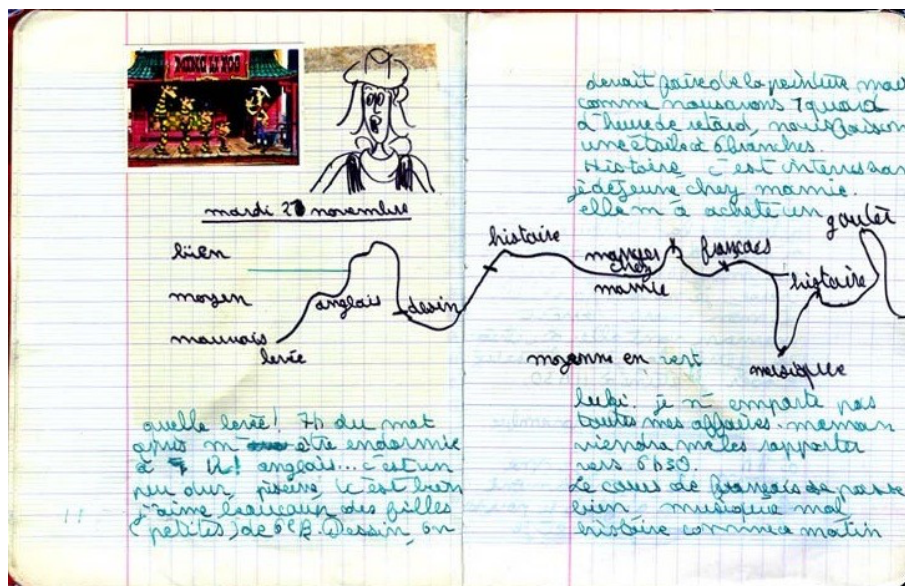 mardi 20 novembre
bien
moyen
mauvais
levée
anglais
dessin
histoire
manger
chez
mamie
français
histoire
goûter
musique
moyenne en vert
quelle levée! 7h du mat
après m' être endormie
à 12! anglais... c'est un
peu dur, piscine, c'est bien
j'aime beaucoup des filles
(petites) de 6eB. Dessin, on
devait faire de la peinture mais
comme nous avons 1 quard
d'heure de retard, nous faison
une étoile à 6 branches.
Histoire, c'est interressan
je déjeune chez mamie.
elle m'a acheté un
je n'emporte pas
toutes mes affaires. maman
viendra me les rapporter
vers 6h30.
Le cours de français se passe
bien, musique mal
histoire comme ce matin